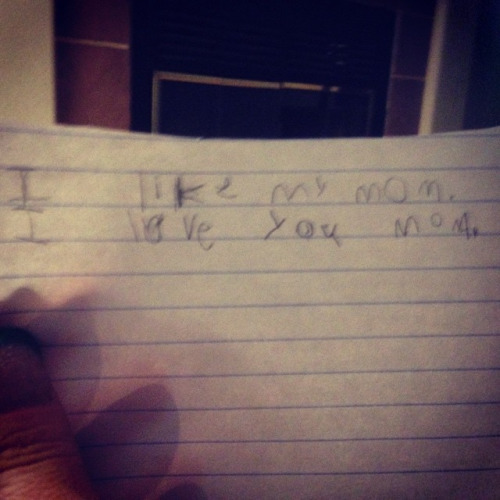 I like my mom.
I love you mom.